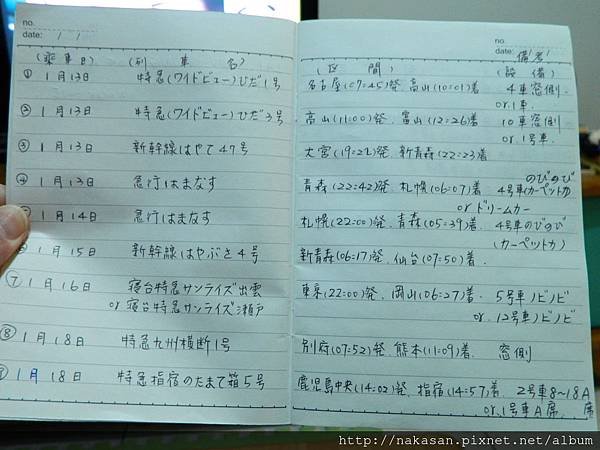 no.
date: / /
(乗車日) (列車名)
① 1月13日 特急(ワイドビュー)ひだ1号
② 1月13日 特急(ワイドビュー)ひだ3号
③ 1月13日 新幹線はやて47号
④ 1月13日 急行はまなす
1月14日 急行はまなす
1月15日 新幹線はやぶさ4号
⑦ 1月16日 寝台特急サンライズ出雲
or 寝台特急サンライズ瀬戸
⑧ 1月18日 特急九州横断1号
⑨ 1月18日 特急指宿のたまて箱5号
no.
date: / /
備考
(区間) (設備)
名古屋(07:45)発. 高山(10:01)着 4車窓側.
or 1車.
高山(11:00)発. 富山(12:26)着 10車窓側
or 1号車.
大宮(19:22)発. 新青森(22:23)着
のびのび
青森(22:42)発. 札幌(06:07)着 4号車(カーペットカ)
or ドリームカー
札幌(22:00)発. 青森(05:39)着. 4号車のびのび
(カーペットカ)
新青森(06:17)発. 仙台(07:50)着.
東京(22:00)発. 岡山(06:27)着. 5号車ノビノビ
or. 12号車ノビノビ
別府(07:52)発. 熊本(11:09)着. 窓側
鹿児島中央(14:02)発. 指宿(14:57)着. 2号車8~18A
or. 1号車A席. 席
http://nakasan.pixnet.net/album